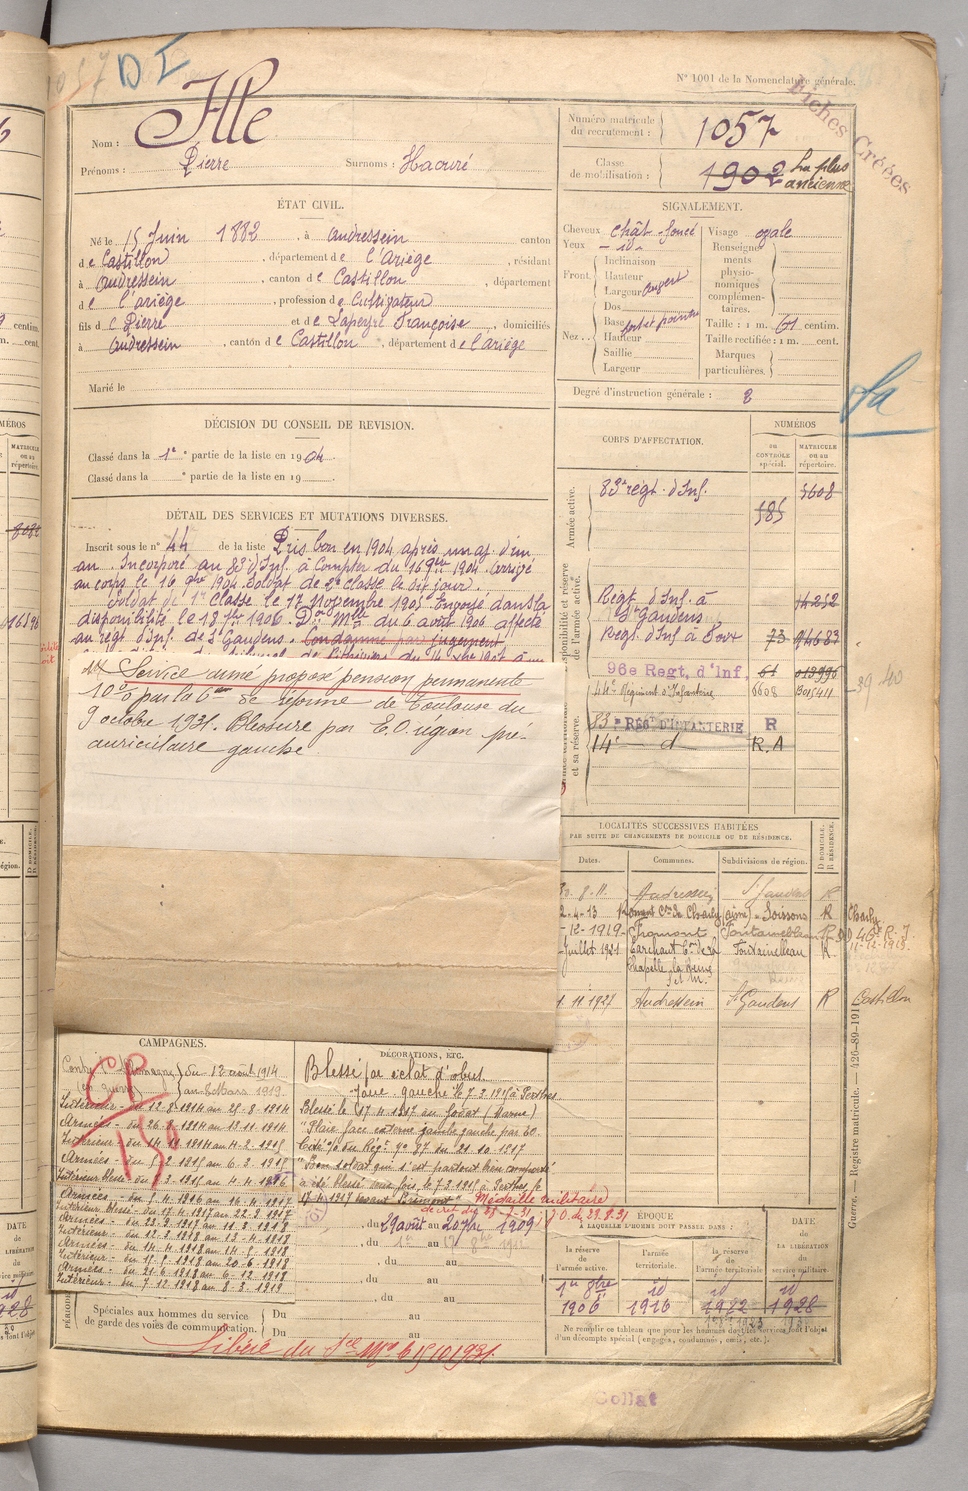 1057 D I
N° 1001 de la Nomenclature générale.
Fiches Créées
Nom : Ille
Prénoms : Pierre Surnoms : Haouré
Numéro matricule du recrutement : 1057
Classe de mobilisation : 1902 La plus ancienne
ÉTAT CIVIL.
Né le 15 Juin 1882, à Audressein canton
de Castillon, département de l'Ariège, résidant
à Audressein, canton de Castillon, département
de l'ariège, profession de Cultivateur
fils de Pierre et de Lapeyre Françoise, domiciliés
à Audressein, canton de Castillon, département de l'ariège
Marié le
SIGNALEMENT.
Cheveux chât-foncé
Yeux - id -
Front Inclinaison
Hauteur
Largeur
Nez Dos
Base
Hauteur
Saillie
Largeur
Visage ovale
Renseignements physionomiques complémentaires.
Taille : 1 m. 61 centim.
Taille rectifiée : 1 m. cent.
Marques particulières.
Degré d'instruction générale : 2
DÉCISION DU CONSEIL DE REVISION.
Classé dans la 1e partie de la liste en 1904.
Classé dans la e partie de la liste en 19
CORPS D'AFFECTATION.
NUMÉROS
AU CONTRÔLE spécial.
MATRICULE OU AU répertoire.
Armée active.
83e régt. d'Inf. 585 5608
Régt d'Inf. à St Gaudens 14252
Régt d'Inf à 73 94683
96e Regt, d'Inf. 61 013996
46e Régiment d'Infanterie 5608
83e REGt D'INFANTERIE R
14e - d - R.A
DÉTAIL DES SERVICES ET MUTATIONS DIVERSES.
Inscrit sous le n° 44 de la liste Pris bon en 1904 après un aj. d'un
an. Incorporé au 83e d'Inf. à Compter du 16 9bre 1904. Arrivé
au corps le 16 9bre 1904. Soldat de 2e classe le dit jour
Soldat de 1e Classe le 17 Novembre 1905. Envoyé dans la
disponibilité le 18 7bre 1906. Don Mlle du 6 août 1906 affecté
au régt d'Inf. de St Gaudens. Condamné par jugement
Service armé proposé pension permanente
10% par la 6e de réforme de Toulouse du
9 octobre 1931. Blessure par E.O. région pré-
auriculaire gauche
LOCALITÉS SUCCESSIVES HABITÉES
PAR SUITE DE CHANGEMENTS DE DOMICILE OU DE RÉSIDENCE.
Dates. Communes. Subdivisions de région. D DOMICILE. R RÉSIDENCE.
8.11. Audressein St Gaudens R
2-4-13 Cton de Charly (aisne) Soissons R Charly
-12-1919 Fromont Fontainebleau R
Juillet 1921 Larchant Con de la Chapelle la Reine S et M. Fontainebleau R
11.1923 Audressein St Gaudens R Castillon
CAMPAGNES.
Contre l'Allemagne du 12 août 1914
au 8 Mars 1919.
Intérieur - du 12-8-1914 au 25-8-1914
Armées - du 26-8-1914 au 13-11-1914
Intérieur - du 14-11-1914 au 4-2-1915
Armées - du 5-2-1915 au 6-3-1915
Intérieur blessé - du 7-3-1915 au 4-1-1916
Armées - du 5-4-1916 au 16-4-1917
Intérieur blessé - du 17-4-1917 au 22-8-1917
Armées - du 23-8-1917 au 11-2-1918
Intérieur - du 12-2-1918 au 13-4-1918
Armées - du 14-4-1918 au 14-5-1918
Intérieur - du 15-5-1918 au 20-6-1918
Armées - du 21-6-1918 au 6-12-1918
Intérieur - du 7-12-1918 au 8-3-1919
CP 150
DÉCORATIONS, ETC.
Blessé par éclat d'obus.
Joue gauche le 7-3-1915 à Perthes
Blessé le 17-4-1917 au Godat (Marne)
"Plaie face externe jambe gauche par EO.
Cité O. du Régt no 87 du 21-10-1917
"Bon soldat qui s'est partout bien comporté
a été blessé deux fois, le 7-3-1915 à Perthes, le
17-4-1917 devant Brimont" Médaille militaire
J.O. de 29.8.31
du 29 août au 20 7bre 1909
du 1er au 17 8bre 1911
du au
du au
du au
Spéciales aux hommes du service de garde des voies de communication. Du au
Du au
ÉPOQUE
À LAQUELLE L'HOMME DOIT PASSER DANS :
la réserve de l'armée active. l'armée territoriale. la réserve de l'armée territoriale
DATE de LA LIBÉRATION du service militaire.
1er 8bre 1906 id 1916 id 1922 id 1928
Ne remplir ce tableau que pour les hommes dont les services font l'objet d'un décompte spécial (engagés, condamnés, omis, etc.).
Libéré du Sce Mre le 15 10 1931.
Guerre. — Registre matricule. — 426-89-191
Collat